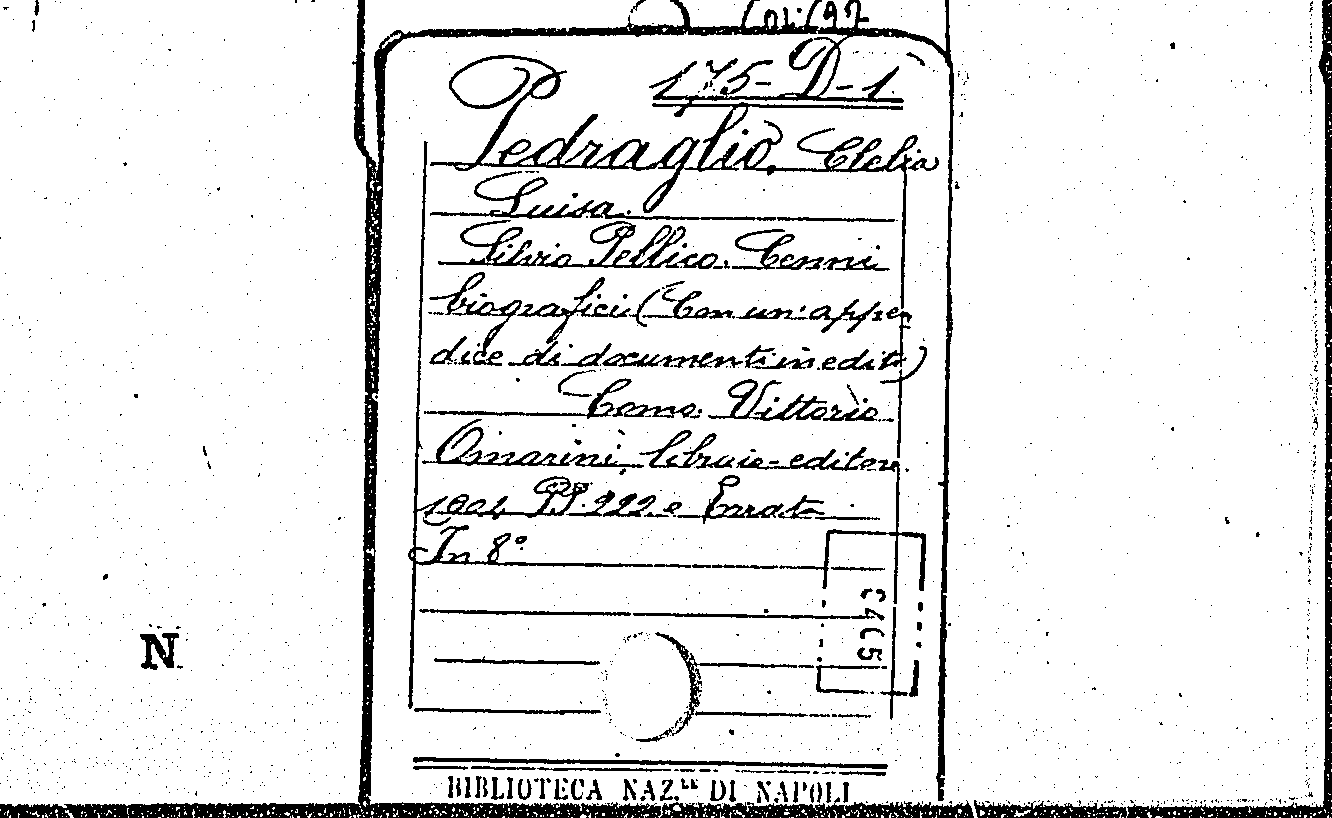 175-D-1.
Pedraglio, Clelia
Luisa.
Silvio Pellico. Cenni
biografici (Con un'appen
dice di documenti inediti)
Como. Vittorio
Omarini, libraio-editore.
1904 PP. 222 e Errata
In 8º
N
BIBLIOTECA NAZ.LE DI NAPOLI